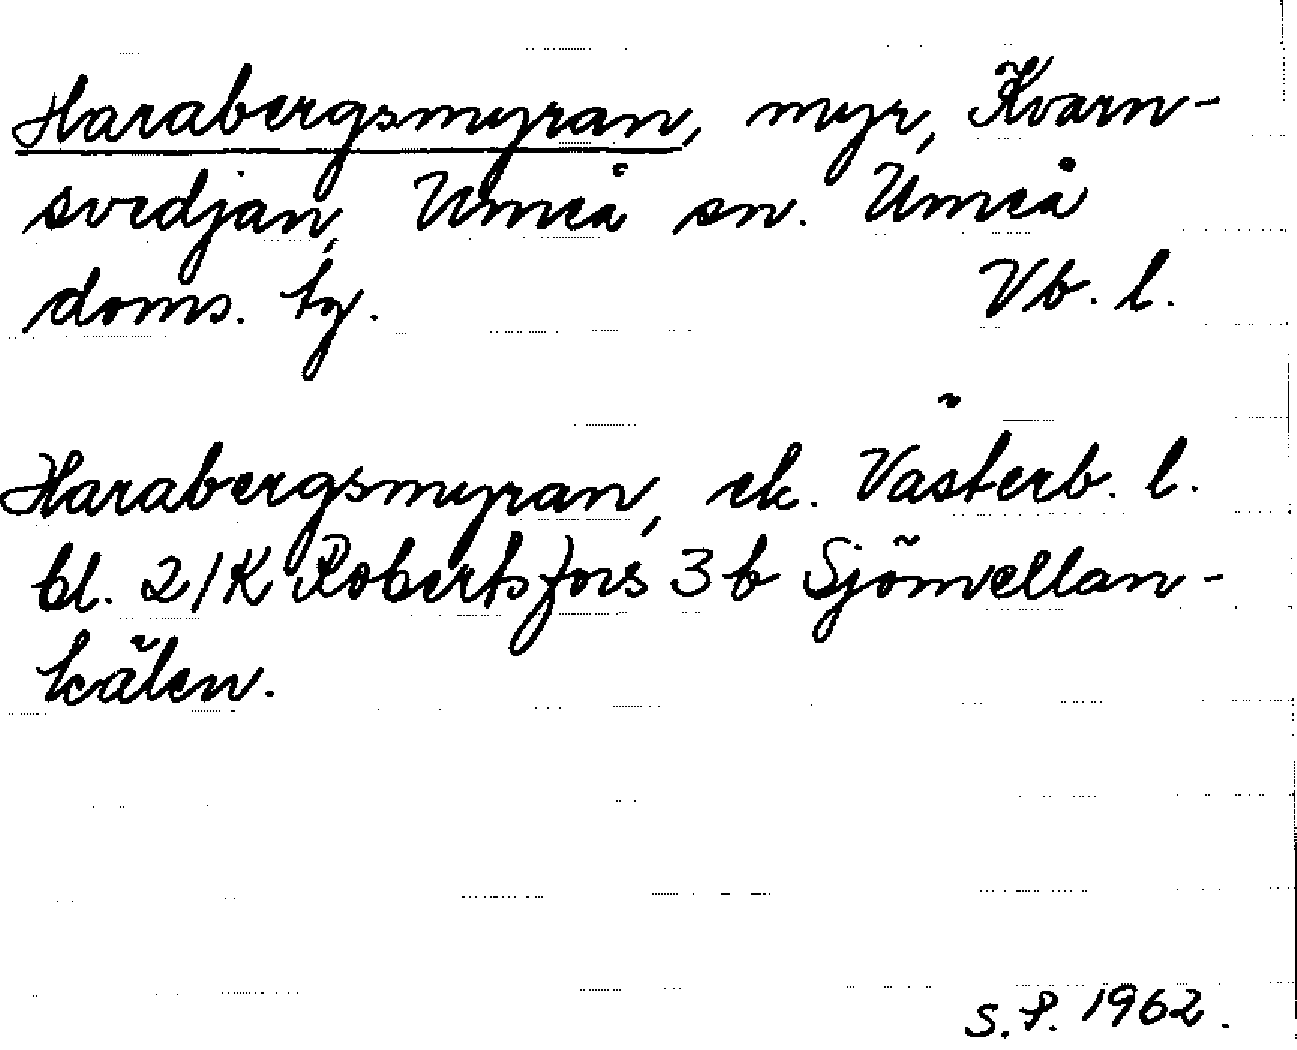 Harabergsmyran, myr, Kvarn-
svedjan, Umeå sn. Umeå
doms. tg. Vb. l.
Harabergsmyran, ek. Västerb. l.
bl. 21K Robertsfors 3b Sjömellan-
kälen.
S.P. 1962.